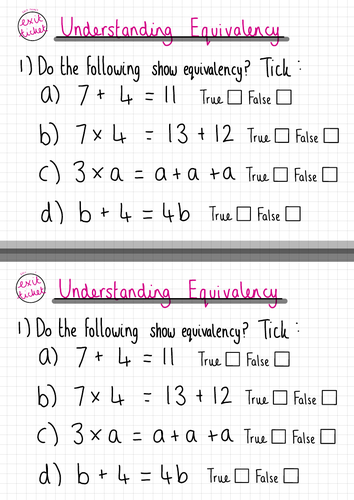 exit ticket
Understanding Equivalency
1) Do the following show equivalency? Tick :
a) 7 + 4 = 11 True False
b) 7 × 4 = 13 + 12 True False
c) 3 × a = a + a + a True False
d) b + 4 = 4b True False
exit ticket
Understanding Equivalency
1) Do the following show equivalency? Tick :
a) 7 + 4 = 11 True False
b) 7 × 4 = 13 + 12 True False
c) 3 × a = a + a + a True False
d) b + 4 = 4b True False